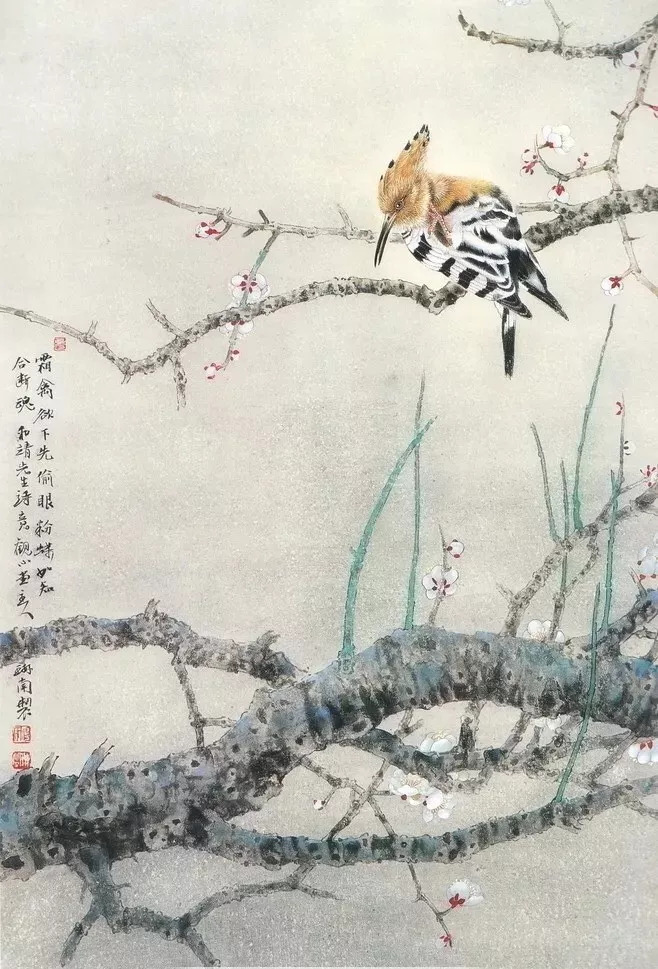 霜禽欲下先偷眼粉蝶如知
合断魂 和靖先生诗意 观心画主人
南製